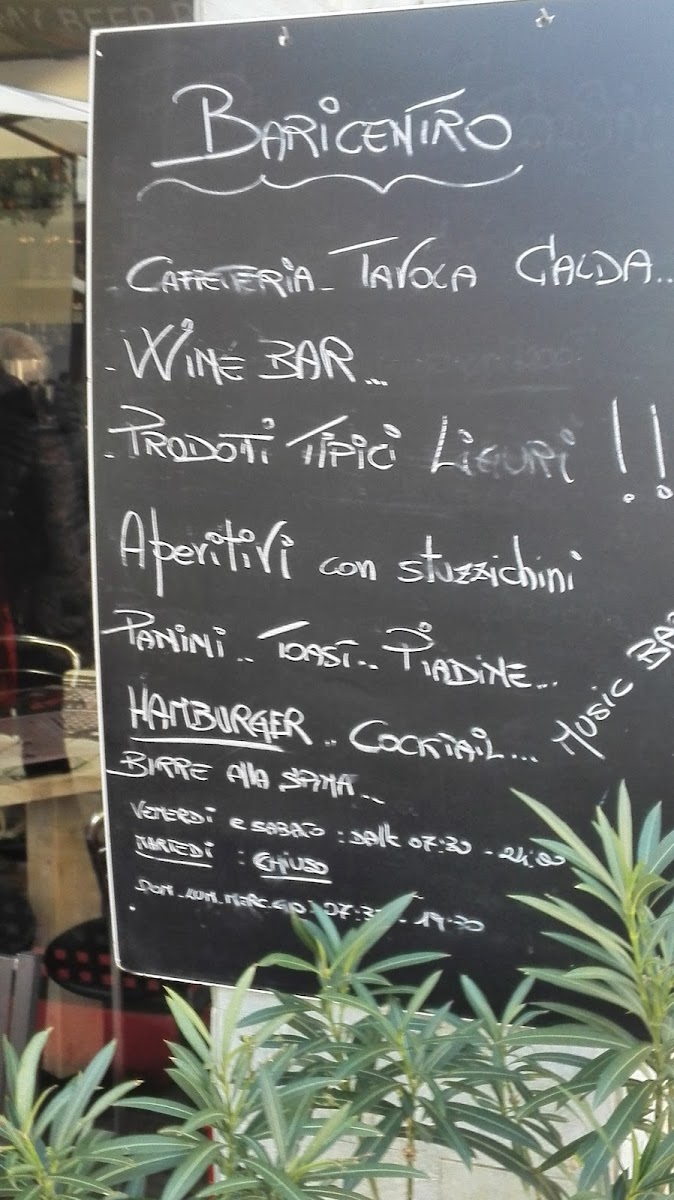 BARICENTRO
- CAFFETERIA - TAVOLA CALDA..
- WINE BAR...
- PRODOTI TIPICI LIGURI !!
Aperitivi con stuzzichini
PANINI.. TOAST.. PIADINE...
HAMBURGER.. COCKTAIL...
MUSIC BA
BIRRE Alla SPINA...
VENERDI e SABATO : DALLE 07:30 - 24:00
MARTEDI : CHIUSO
DOM. LUN. MERC. GIO 07:30 - 19:30